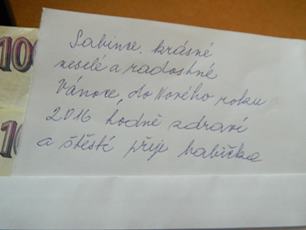 Sabince krásné
veselé a radostné
Vánoce, do Nového roku
2016 hodně zdraví
a štěstí přeje babička
100
10